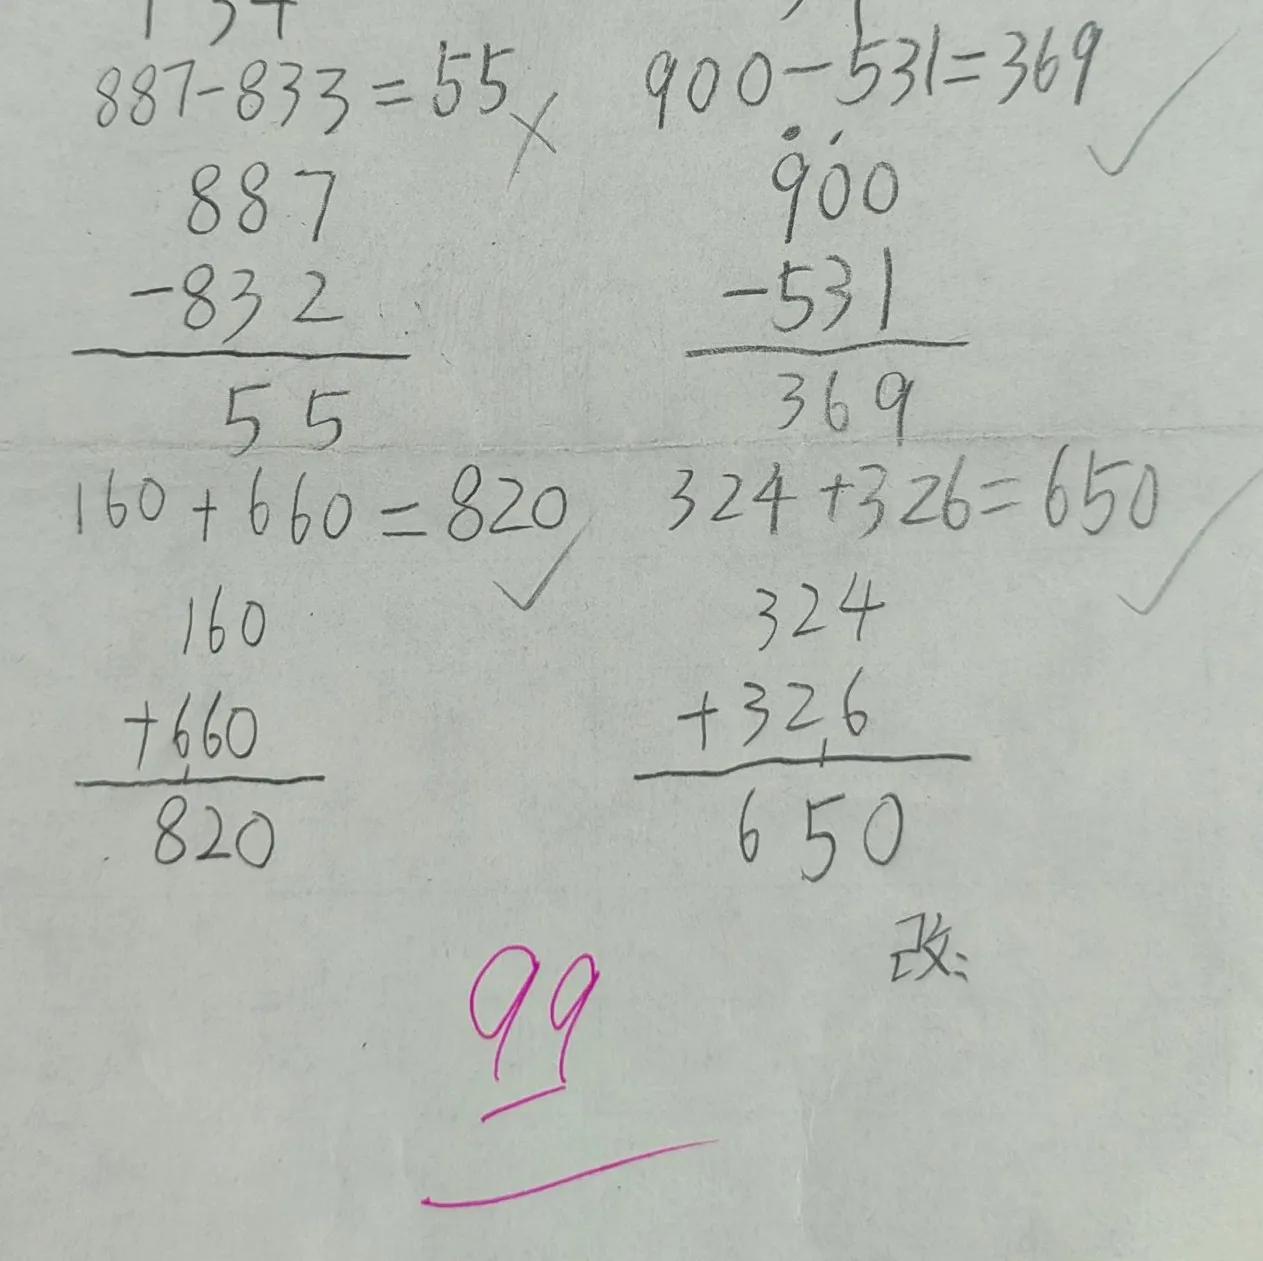 887-833=55 900-531=369
887 900
-832 -531
55 369
160+660=820 324+326=650
160 324
+660 +326
820 650
改:
99